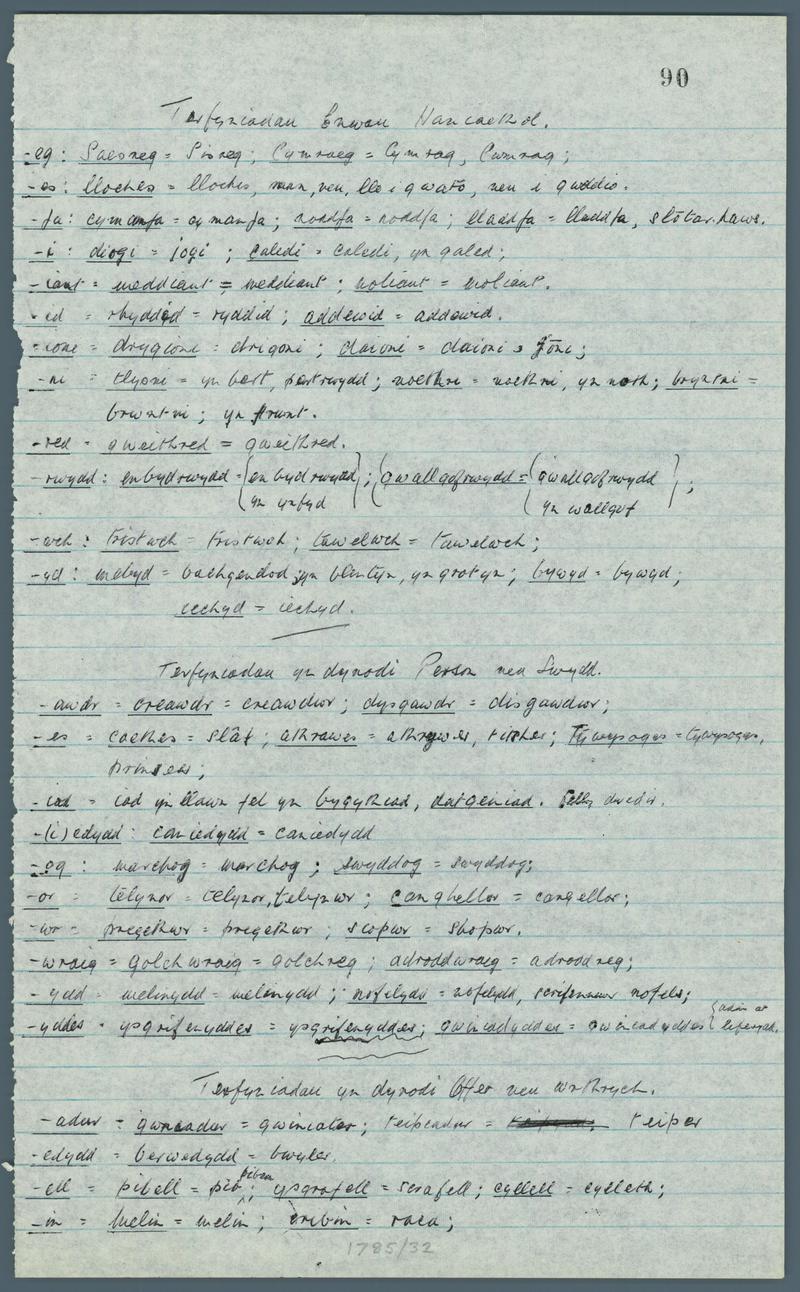 90
Terfyniadau Enwau Haniaethol.
-eg: Saesneg = Sisneg; Cymraeg = Cymrag, Cwmrag;
-es: lloches = lloches, man, neu, lle i gwato, neu i gwddio.
-fa: cymanfa = cymanfa; noddfa = noddfa; lladdfa = lladdfa, slôtar-haws.
-i: diogi = jogi; caledi = caledi, yn galed;
-iant = meddiant = meddiant; moliant = moliant.
-id = rhyddid = ryddid; addewid = addewid.
-ioni = drygioni = drigoni; daioni = daioni
-ni = tlysni = yn bert, pertrwydd; noethni = noethni, yn noth; bryntni =
brwntni; yn frwnt.
-red = gweithred = gweithred.
-rwydd: enbydrwydd = {enbydrwydd}; {gwallgofrwydd = {gwallgofrwydd};
yn ynfyd yn wallgof
-wch: tristwch = tristwch; tawelwch = tawelwch;
-yd: mebyd = bachgendod, yn blentyn, yn grotyn; bywyd = bywyd;
iechyd = iechyd.
Terfyniadau yn dynodi Person neu Swydd.
-awdr = creawdr = creawdwr; dysgawdr = disgawdwr;
-es = caethes = slâf; athrawes = athrawes, titcher; tywysoges = tywysoges,
prinses;
-iad = iad yn llawn fel yn bygythiad, datgeiniad. Felly dwedir.
-(i)edydd: caniedydd = caniedydd
-og: marchog = marchog; swyddog = swyddog;
-or = telynor = telynor, telynwr; canghellor = cangellor;
-wr = pregethwr = pregethwr; siopwr = shopwr.
-wraig = golchwraig = golchreg; adroddwraig = adroddreg;
-ydd = melinydd = melinydd; nofelydd = nofelydd, scrifennwr nofels;
-yddes = ysgrifenyddes = ysgrifenyddes; gwniadyddes = gwniadyddes
Terfyniadau yn dynodi Offer neu Wrthrych.
-adur = gwniadur = gwiniatur; teipiadur = teiper
-edydd = berwedydd = bwyler.
-ell = pibell = pib, piben; ysgrafell = scrafell; cyllell = cylleth;
-in = melin = melin; cribin = raca;
1785/32